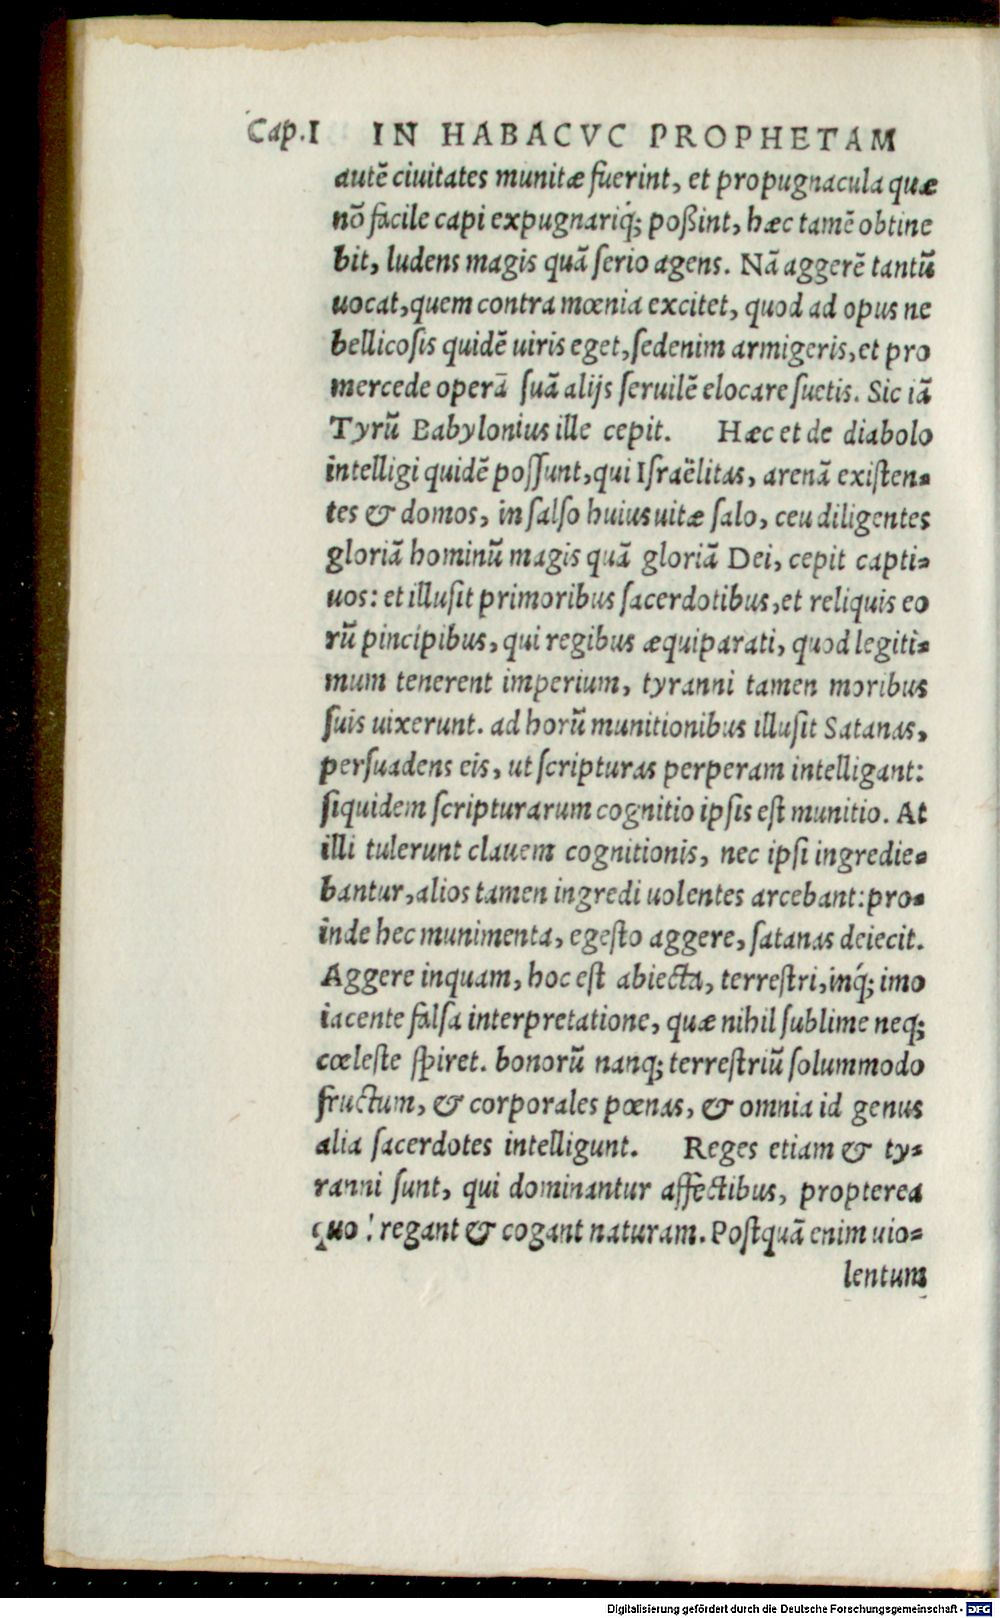 Cap.I IN HABACVC PROPHETAM
autē ciuitates munitæ fuerint, et propugnacula quæ
nō facile capi expugnariq́; poßint, hæc tamē obtine
bit, ludens magis quā ſerio agens. Nā aggerē tantū
uocat, quem contra mœnia excitet, quod ad opus ne
bellicoſis quidē uiris eget, ſedenim armigeris, et pro
mercede operā ſuā alijs ſeruilē elocare ſuetis. Sic iā
Tyrū Babylonius ille cepit. Hæc et de diabolo
intelligi quidē poſſunt, qui Iſraëlitas, arenā exiſten-
tes & domos, in ſalſo huius uitæ ſalo, ceu diligentes
gloriā hominū magis quā gloriā Dei, cepit capti-
uos: et illuſit primoribus ſacerdotibus, et reliquis eo
rū pincipibus, qui regibus æquiparati, quod legiti-
mum tenerent imperium, tyranni tamen moribus
ſuis uixerunt. ad horū munitionibus illuſit Satanas,
perſuadens eis, ut ſcripturas perperam intelligant:
ſiquidem ſcripturarum cognitio ipſis eſt munitio. At
illi tulerunt clauem cognitionis, nec ipſi ingredie-
bantur, alios tamen ingredi uolentes arcebant: pro-
inde hec munimenta, egeſto aggere, ſatanas deiecit.
Aggere inquam, hoc eſt abiecta, terreſtri, inq́; imo
iacente falſa interpretatione, quæ nihil ſublime neq;
cœleſte ſpiret. bonorū nanq; terreſtriū ſolummodo
fructum, & corporales pœnas, & omnia id genus
alia ſacerdotes intelligunt. Reges etiam & ty-
ranni ſunt, qui dominantur affectibus, propterea
regant & cogant naturam. Poſtquā enim uio-
lentum
Digitalisierung gefördert durch die Deutsche Forschungsgemeinschaft - DFG